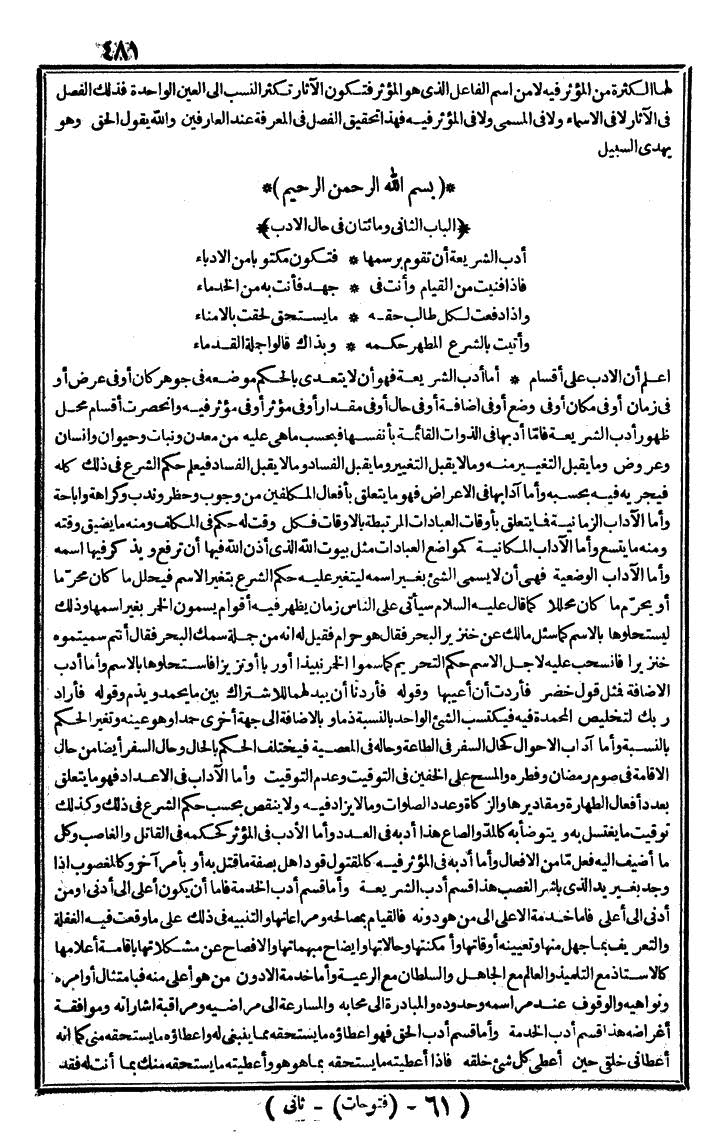 ٤٨١
لها الكثرة من المؤثر فيه لا من اسم الفاعل الذى هو المؤثر فتكون الآثار تكثر النسب الى العين الواحدة فذلك الفصل
فى الآثار لا فى الاسماء ولا فى المسمى ولا فى المؤثر فيه فهذا تحقيق الفصل فى المعرفة عند العارفين والله يقول الحق وهو
يهدى السبيل
*( بسم الله الرحمن الرحيم )*
*﴿الباب الثانى ومائتان فى حال الادب﴾*
أدب الشريعة أن تقوم برسمها * فتكون مكتوبا من الادباء
فاذا فنيت من القيام وأنت فى * جهد فأنت به من الخدماء
واذا دفعت لكل طالب حقه * ما يستحق لحقت بالامناء
وأتيت بالشرع المطهر حكمه * وبذاك قالوا جلة القدماء
اعلم أن الادب على أقسام * أما أدب الشريعة فهو أن لا يتعدى بالحكم موضعه فى جوهر كان أو فى عرض أو
فى زمان أو فى مكان أو فى وضع أو فى اضافة أو فى حال أو فى مقدار أو فى مؤثر أو فى مؤثر فيه وانحصرت أقسام محل
ظهور أدب الشريعة فاما أدبها فى الذوات القائمة بأنفسها فبحسب ماهى عليه من معدن ونبات وحيوان وانسان
وعروض وما يقبل التغيير منه وما لا يقبل التغيير وما يقبل الفساد وما لا يقبل الفساد فيعلم حكم الشرع فى ذلك كله
فيجريه فيه بحسبه وأما آدابها فى الاعراض فهو ما يتعلق بأفعال المكلفين من وجوب وحظر وندب وكراهة واباحة
وأما الآداب الزمانية فما يتعلق بأوقات العبادات المرتبطة بالاوقات فكل وقت له حكم فى المكلف ومنه ما يضيق وقته
ومنه ما يتسع وأما الآداب المكانية كمواضع العبادات مثل بيوت الله الذى أذن الله فيها أن ترفع ويذكر فيها اسمه
وأما الآداب الوضعية فهى أن لا يسمى الشئ بغير اسمه ليتغير عليه حكم الشرع بتغير الاسم فيحلل ما كان محرّما
أو يحرّم ما كان محللا كما قال عليه السلام سيأتى على الناس زمان يظهر فيه أقوام يسمون الخمر بغير اسمها وذلك
ليستحلوها بالاسم كما سئل مالك عن خنزير البحر فقال هو حرام فقيل له انه من جملة سمك البحر فقال أنتم سميتموه
خنزيرا فانسحب عليه لاجل الاسم حكم التحريم كما سموا الخمر نبيذا أو ربا أو تزيزا فاستحلوها بالاسم وأما أدب
الاضافة فمثل قول خضر فأردت أن أعيبها وقوله فأردنا أن يبدلهما للاشتراك بين ما يحمد ويذم وقوله فأراد
ربك لتخليص المحمدة فيه فيكتسب الشئ الواحد بالنسبة ذما وبالاضافة الى جهة أخرى حمدا وهو عينه وتغير الحكم
بالنسبة وأما آداب الاحوال كحال السفر فى الطاعة وحاله فى المعصية فيختلف الحكم بالحال وحال السفر أيضا من حال
الاقامة فى صوم رمضان وفطره والمسح على الخفين فى التوقيت وعدم التوقيت وأما الآداب فى الاعداد فهو ما يتعلق
بعدد أفعال الطهارة ومقاديرها والزكاة وعدد الصلوات وما لا يزاد فيه ولا ينقص بحسب حكم الشرع فى ذلك وكذلك
توقيت ما يغتسل به ويتوضأ به كالمدّ والصاع هذا أدبه فى العدد وأما الأدب فى المؤثر كحكمه فى القاتل والغاصب وكل
ما أضيف اليه فعل مّا من الافعال وأما أدبه فى المؤثر فيه كالمقتول قودا هل بصفة ما قتل به أو بأمر آخر وكالمغصوب اذا
وجد بغير يد الذى باشر الغصب هذا قسم أدب الشريعة وأما قسم أدب الخدمة فاما أن يكون أعلى الى أدنى أو من
أدنى الى أعلى فاما خدمة الاعلى الى من هو دونه فالقيام بمصالحه ومراعاتها والتنبيه فى ذلك على ما وقعت فيه الغفلة
والتعريف بما جهل منها وتعيينه أوقاتها وأمكنتها وحالاتها وايضاح مبهماتها والافصاح عن مشكلاتها باقامة أعلامها
كالاستاذ مع التلميذ والعالم مع الجاهل والسلطان مع الرعية وأما خدمة الادون من هو أعلى منه فبامتثال أوامره
ونواهيه والوقوف عند مراسمه وحدوده والمبادرة الى محابه والمسارعة الى مراضيه ومراقبة اشاراته وموافقة
أغراضه هذا قسم أدب الخدمة وأما قسم أدب الحق فهو اعطاؤه ما يستحقه مما ينبغى له واعطاؤه ما يستحقه منى كما انه
أعطانى خلقى حين أعطى كل شئ خلقه فاذا أعطيته ما يستحقه بما هو هو وأعطيته ما يستحقه منك بما أنت له فقد
( ٦١ - (فتوحات) - ثانى )